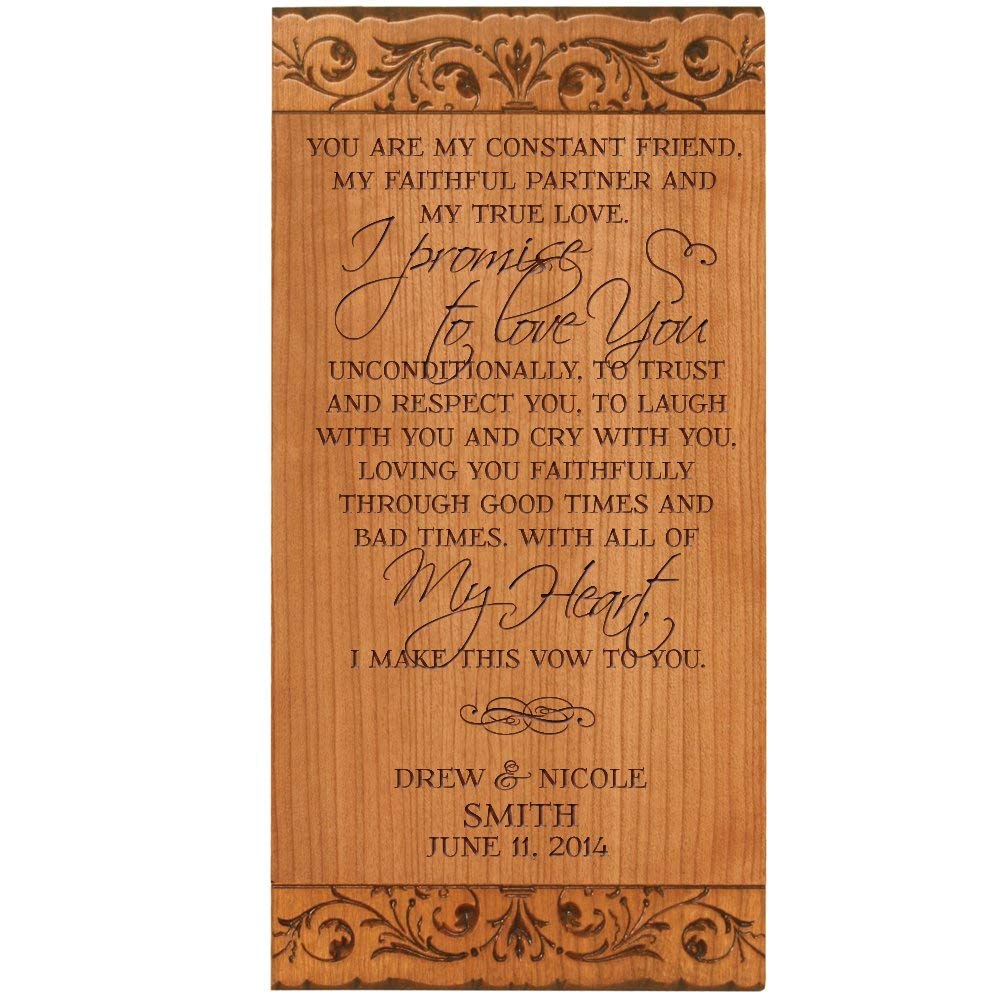 YOU ARE MY CONSTANT FRIEND,
MY FAITHFUL PARTNER AND
MY TRUE LOVE.
I promise
to love You
UNCONDITIONALLY, TO TRUST
AND RESPECT YOU, TO LAUGH
WITH YOU AND CRY WITH YOU,
LOVING YOU FAITHFULLY
THROUGH GOOD TIMES AND
BAD TIMES. WITH ALL OF
My Heart,
I MAKE THIS VOW TO YOU.
DREW & NICOLE
SMITH
JUNE 11, 2014